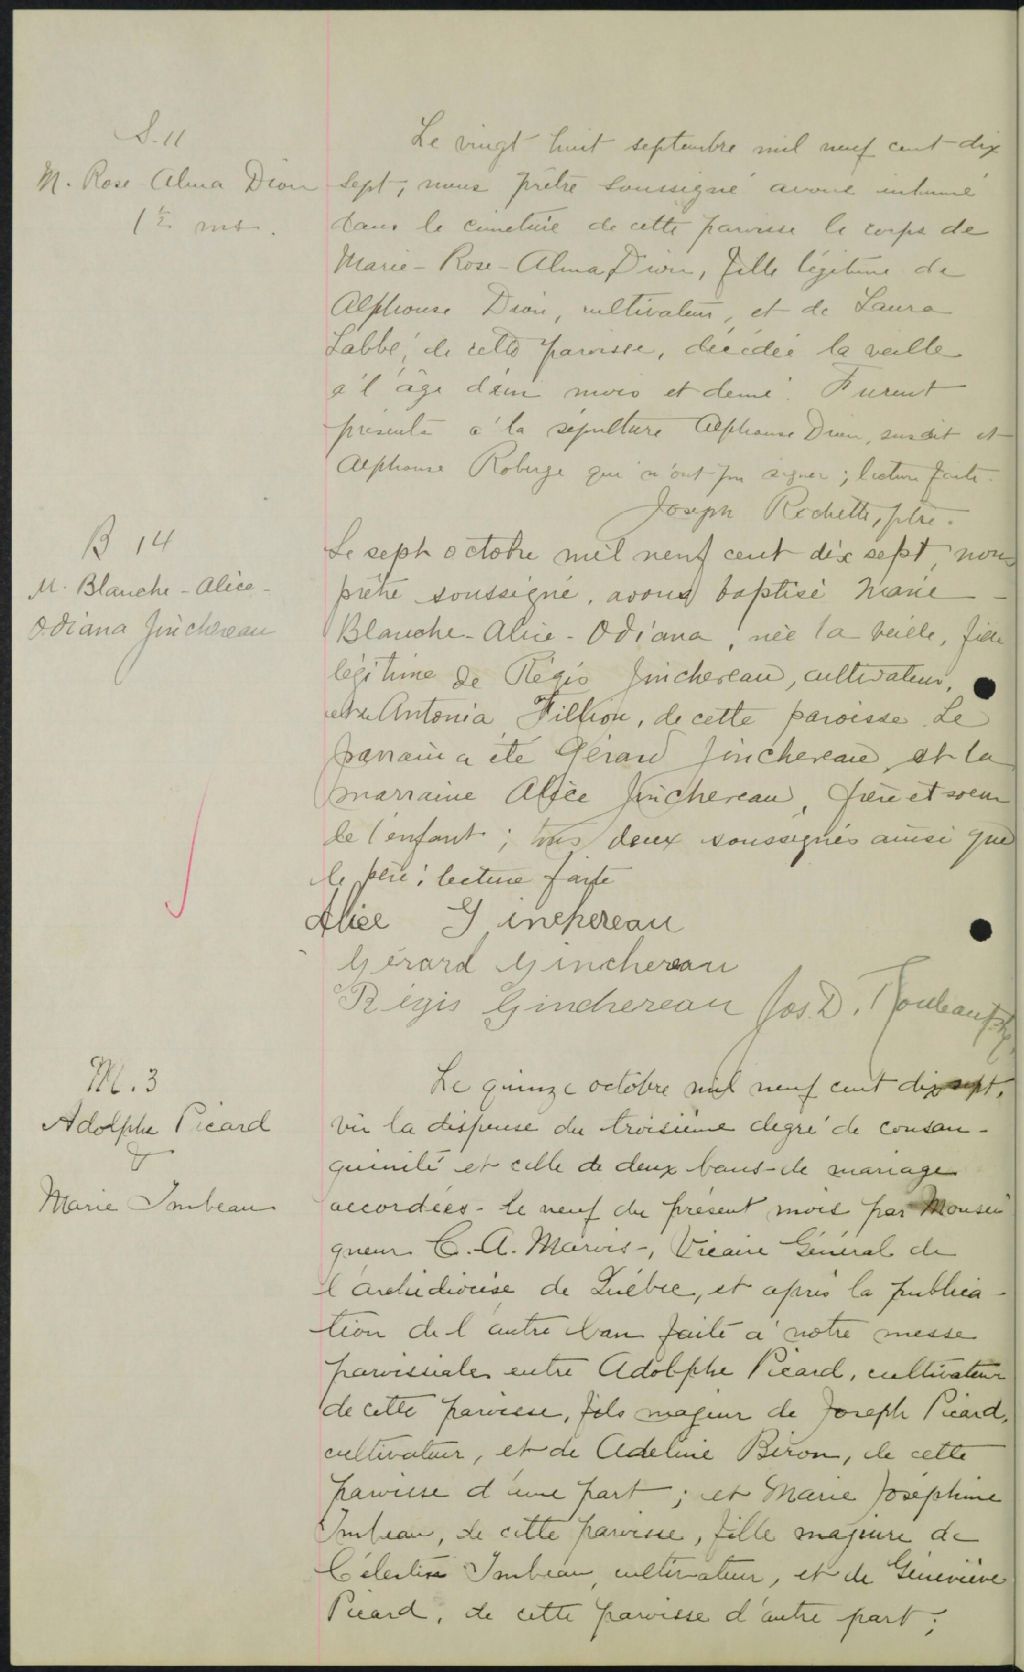 S. 11
M. Rose Alma Dion
1 ½ ms.
Le vingt huit septembre mil neuf cent dix
sept, nous prêtre soussigné avons inhumé
dans le cimetière de cette paroisse le corps de
Marie-Rose-Alma Dion, fille légitime de
Alphonse Dion, cultivateur, et de Laura
Labbé, de cette paroisse, décédée la veille
à l'âge d'un mois et demi. Furent
présents à la sépulture Alphonse Dion, susdit et
Alphonse Roberge qui n'ont pu signer; lecture faite.
Joseph Rochette, ptre.
B 14
M. Blanche-Alice-
Odiana Jinchereau
Le sept octobre mil neuf cent dix sept, nous
prêtre soussigné, avons baptisé Marie-
Blanche-Alice-Odiana, née la veille, fille
légitime de Régis Jinchereau, cultivateur,
Antonia Fillion, de cette paroisse. Le
parrain a été Gérard Jinchereau et la
marraine Alice Jinchereau, frère et soeur
de l'enfant; tous deux soussignés ainsi que
le père; lecture faite
Alice Ginchereau
Gérard Ginchereau
Régis Ginchereau Jos. D.
M. 3
Adolphe Picard
&
Marie Imbeau
Le quinze octobre mil neuf cent dix sept,
vu la dispense du troisième degré de consan-
guinité et celle de deux bans de mariage
accordées le neuf du présent mois par Monsei
gneur C. A. Marois, Vicaire Général de
l'archidiocèse de Québec, et après la publica-
tion de l'autre ban faite à notre messe
paroissiale entre Adolphe Picard, cultivateur
de cette paroisse, fils majeur de Joseph Picard,
cultivateur, et de Adeline Biron, de cette
paroisse d'une part; et Marie Joséphine
Imbeau, de cette paroisse, fille majeure de
Célestin Imbeau, cultivateur, et de Geneviève
Picard, de cette paroisse d'autre part;